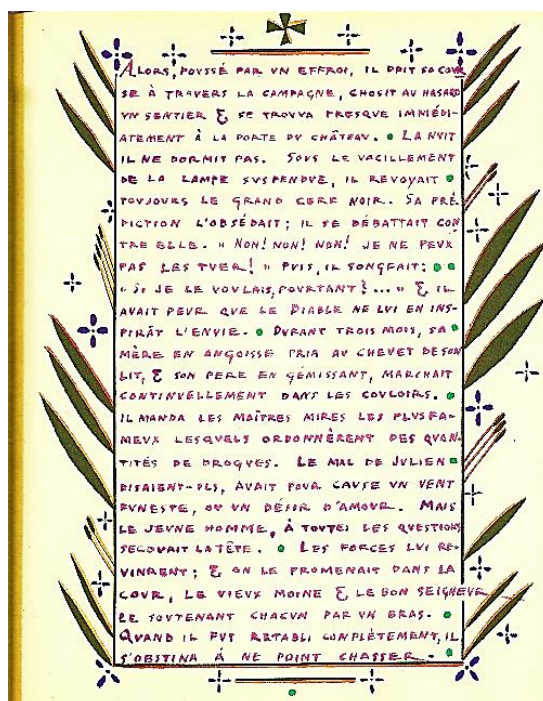 ALORS, POVSSÉ PAR VN EFFROI, IL PRIT SA COVR
SE À TRAVERS LA CAMPAGNE, CHOSIT AV HASARD
VN SENTIER & SE TROVVA PRESQVE IMMÉDI-
ATEMENT À LA PORTE DV CHÂTEAV. LA NVIT
IL NE DORMIT PAS. SOVS LE VACILLEMENT
DE LA LAMPE SVSPENDVE, IL REVOYAIT
TOVJOVRS LE GRAND CERF NOIR. SA PRÉ
DICTION L'OBSÉDAIT; IL SE DÉBATTAIT CON
TRE ELLE. « NON! NON! NON! JE NE PEVX
PAS LES TVER! » PVIS, IL SONGEAIT:
« SI JE LE VOVLAIS, POVRTANT?... » & IL
AVAIT PEVR QVE LE DIABLE NE LVI EN INS-
PIRÂT L'ENVIE. DVRANT TROIS MOIS, SA
MÈRE EN ANGOISSE PRIA AV CHEVET DE SON
LIT, & SON PÈRE EN GÉMISSANT, MARCHAIT
CONTINVELLEMENT DANS LES COVLOIRS.
IL MANDA LES MAÎTRES MIRES LES PLVS FA-
MEVX LESQVELS ORDONNÈRENT DES QVAN-
TITÉS DE DROGVES. LE MAL DE JVLIEN
DISAIENT-ILS, AVAIT POVR CAVSE VN VENT
FVNESTE, OV VN DÉSIR D'AMOVR. MAIS
LE JEVNE HOMME, À TOVTES LES QVESTIONS
SECOVAIT LA TÊTE. LES FORCES LVI RE-
VINRENT; & ON LE PROMENAIT DANS LA
COVR, LE VIEVX MOINE & LE BON SEIGNEVR
LE SOVTENANT CHACVN PAR VN BRAS.
QVAND IL FVT RÉTABLI COMPLÈTEMENT, IL
S'OBSTINA À NE POINT CHASSER.